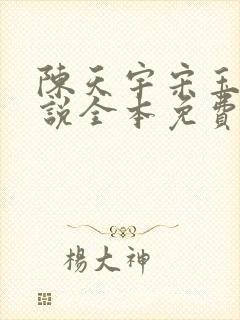 陳天宇宋玉
說全本免費
楊大神